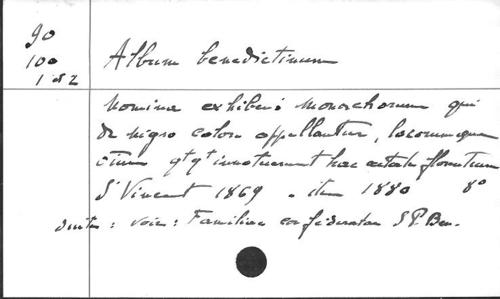 90
100
1 et 2
Album benedictinum
Nomina exhibens monachorum qui
de nigro colore appellantur, locorumque
omnium qtqt innotuerunt hac aetate florentium
St Vincent 1869 . item 1880 8°
suite : voir : Familiae confoederatae S.P. Ben.